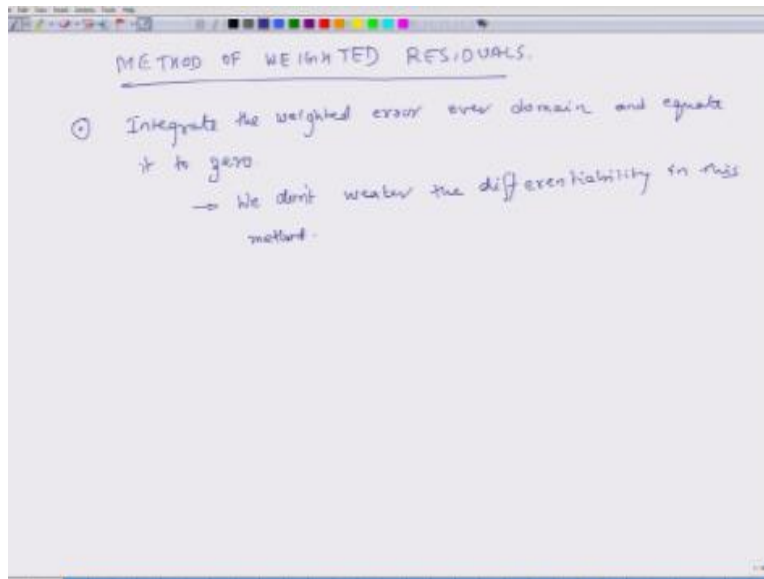 METHOD OF WEIGHTED RESIDUALS.
Integrate the weighted error over domain and equate
it to zero
→ We don't weaken the differentiability in this
method.